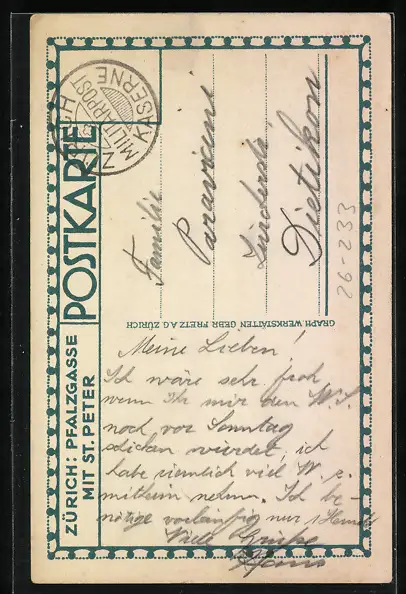 POSTKARTE
ZÜRICH: PFALZGASSE
MIT ST. PETER
ZÜRICH
KASERNE
MILITÄRPOST
Familie
Paravicini
Dietikon
26-233
GRAPH. WERKSTÄTTEN GEBR. FRETZ A.G. ZÜRICH
Meine Lieben!
Ich wäre sehr froh
wenn Ihr mir den W. S.
noch vor Sonntag
schicken würdet, ich
habe ziemlich viel W. z.
mitheim nehmen. Ich be-
nötige vorläufig nur 1 Hemd
Viele Grüsse
Hans